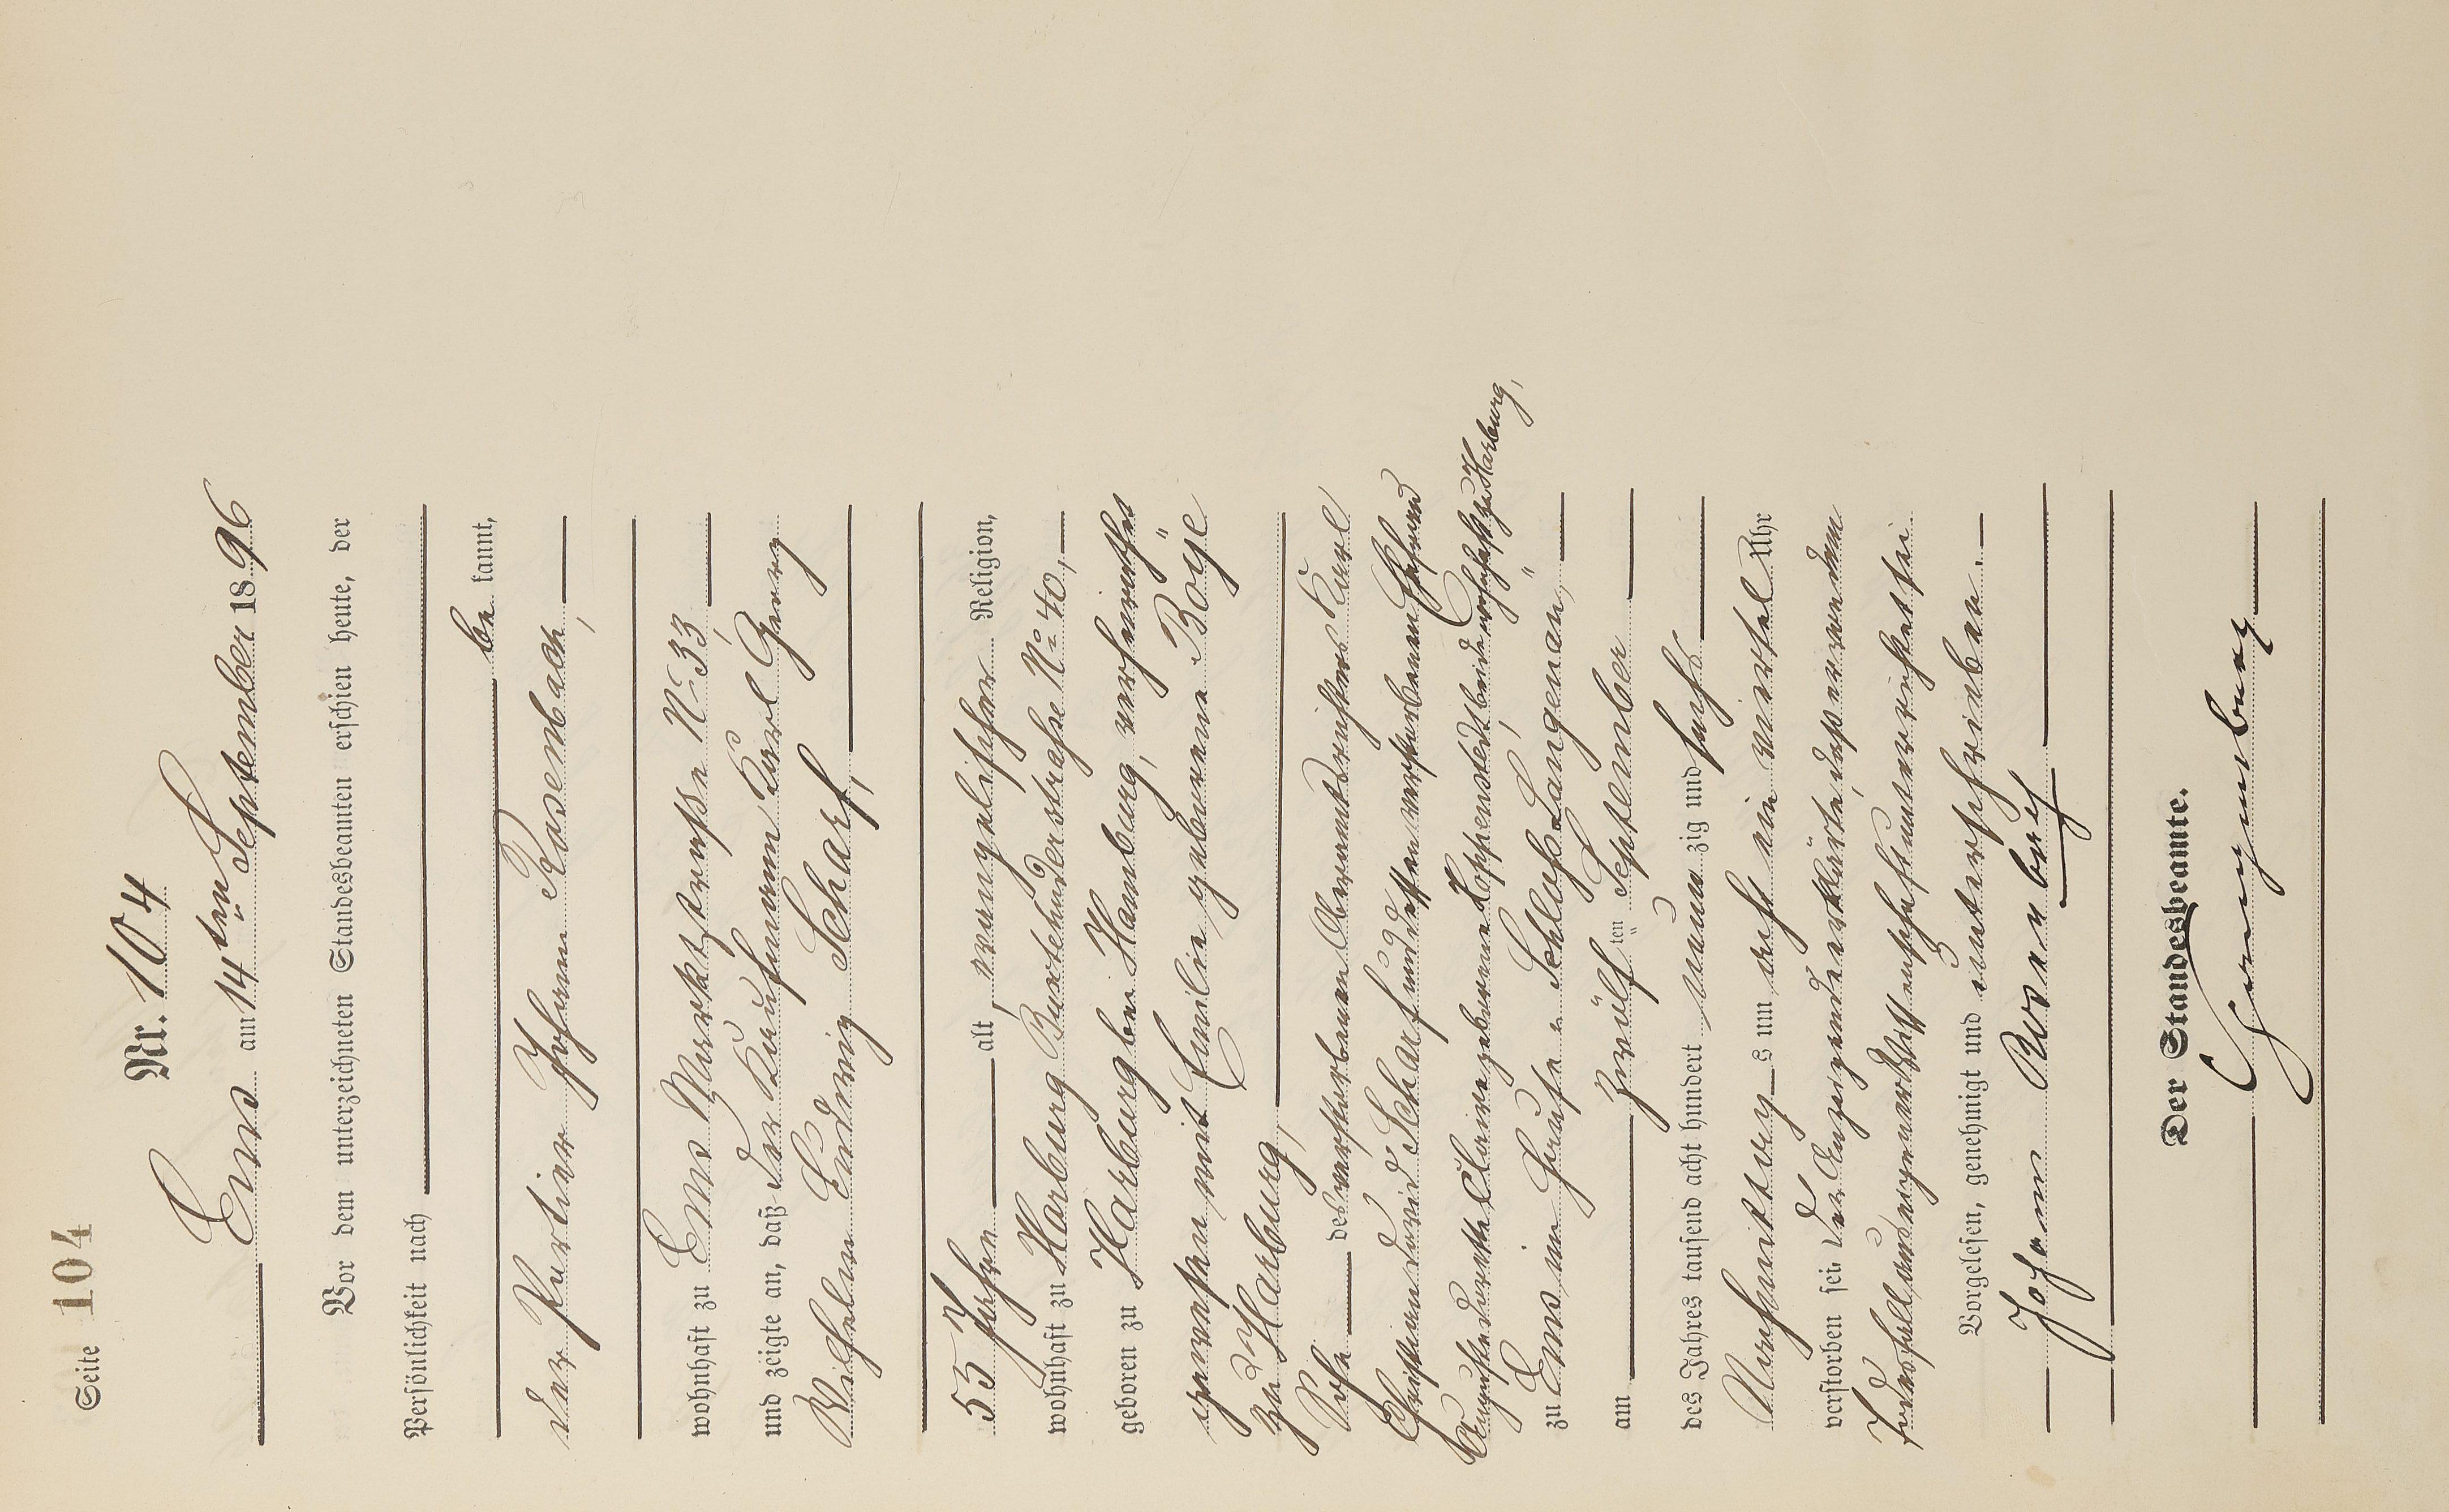 Seite 104
Nr. 104
Ems am 14ten September 1896
Vor dem unterzeichneten Standesbeamten erschien heute, der
Persönlichkeit nach
be kannt,
der Portier Johann Rosenbach,
wohnhaft zu Ems Marktstraße No 33,
und zeigte an, daß der Kaufmann Karl Georg
Wilhelm Ludwig Scharf,
55 Jahre alt, evangelischer Religion,
wohnhaft zu Harburg Buxtehuderstrahse No 40,
geboren zu Harburg bei Hamburg, verheirathet
gewesen mit Emilie geborene Boye
zu Harburg,
Sohn des verstorbenen Karl
Christian David Scharf und dessen verstorbenen Ehefrau
Auguste Dorothe Clarine geborene Koppenstedt, beide wohnhaft zu Harburg,
zu Ems im Hause "Schloß Langenau",
am zwölften September
des Jahres tausend acht hundert neun zig und sechs
Nachmittags um acht ein viertel Uhr
verstorben sei. Der Anzeigende erklärte, daß er von dem
Todesfall aus eigener Wissenschaft unterrichtet sei.
Vorgelesen, genehmigt und unterschrieben.
Johann Rosenbach
Der Standesbeamte.